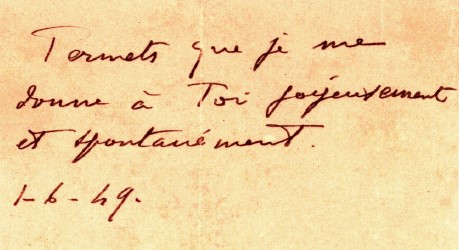 Permets que je me
donne à Toi joyeusement
et spontanément.
1-6-49.